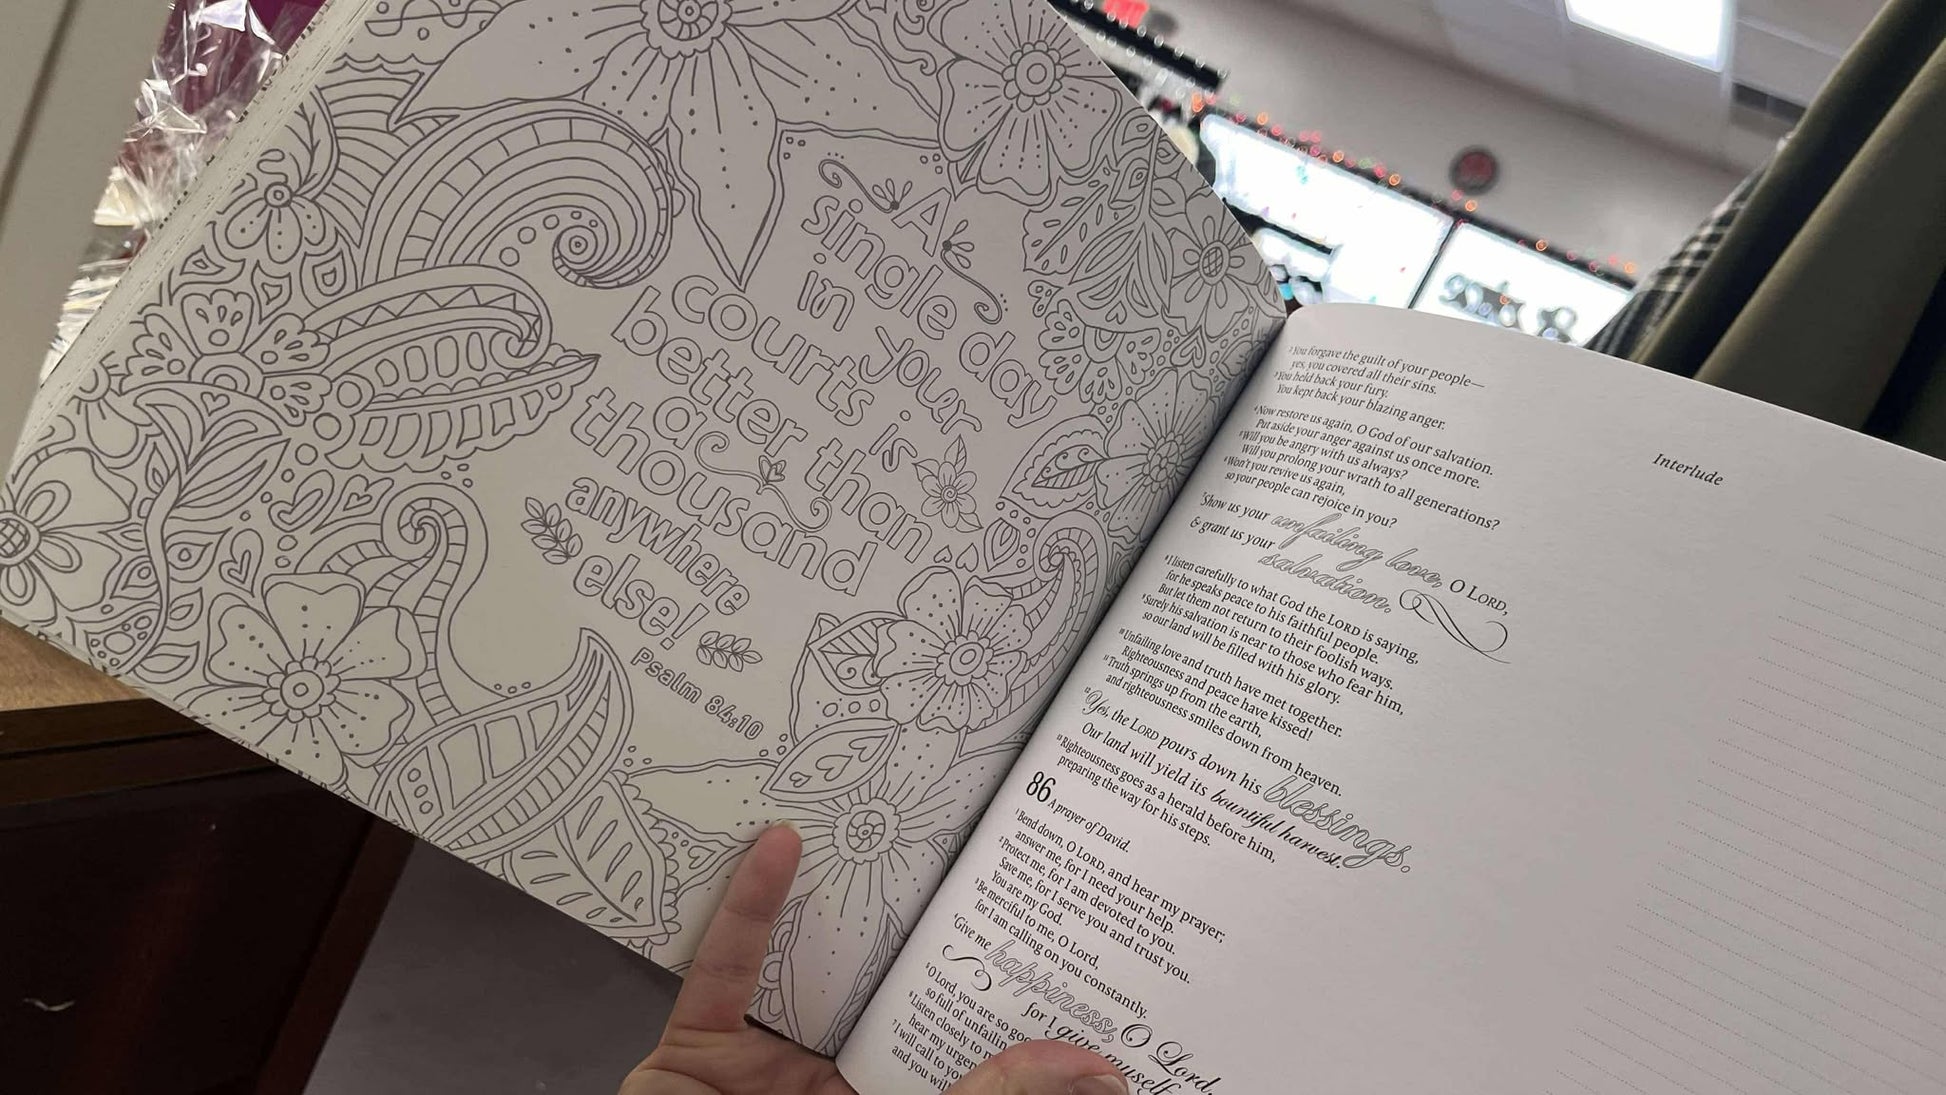 A
single day
in your
courts is
better than
a
thousand
anywhere
else!
Psalm 84:10
2 You forgave the guilt of your people—
yes, you covered all their sins.
3 You held back your fury.
You kept back your blazing anger.
Interlude
4 Now restore us again, O God of our salvation.
Put aside your anger against us once more.
5 Will you be angry with us always?
Will you prolong your wrath to all generations?
6 Won't you revive us again,
so your people can rejoice in you?
7 Show us your unfailing love, O LORD,
& grant us your salvation.
8 I listen carefully to what God the LORD is saying,
for he speaks peace to his faithful people.
But let them not return to their foolish ways.
9 Surely his salvation is near to those who fear him,
so our land will be filled with his glory.
10 Unfailing love and truth have met together.
Righteousness and peace have kissed!
11 Truth springs up from the earth,
and righteousness smiles down from heaven.
12 Yes, the LORD pours down his blessings.
Our land will yield its bountiful harvest.
13 Righteousness goes as a herald before him,
preparing the way for his steps.
86
A prayer of David.
1 Bend down, O LORD, and hear my prayer;
answer me, for I need your help.
2 Protect me, for I am devoted to you.
Save me, for I serve you and trust you.
You are my God.
3 Be merciful to me, O Lord,
for I am calling on you constantly.
4 Give me happiness, O Lord,
for I give myself
5 O Lord, you are so
so full of
6 Listen closely to
hear my
7 I will call to
and you will